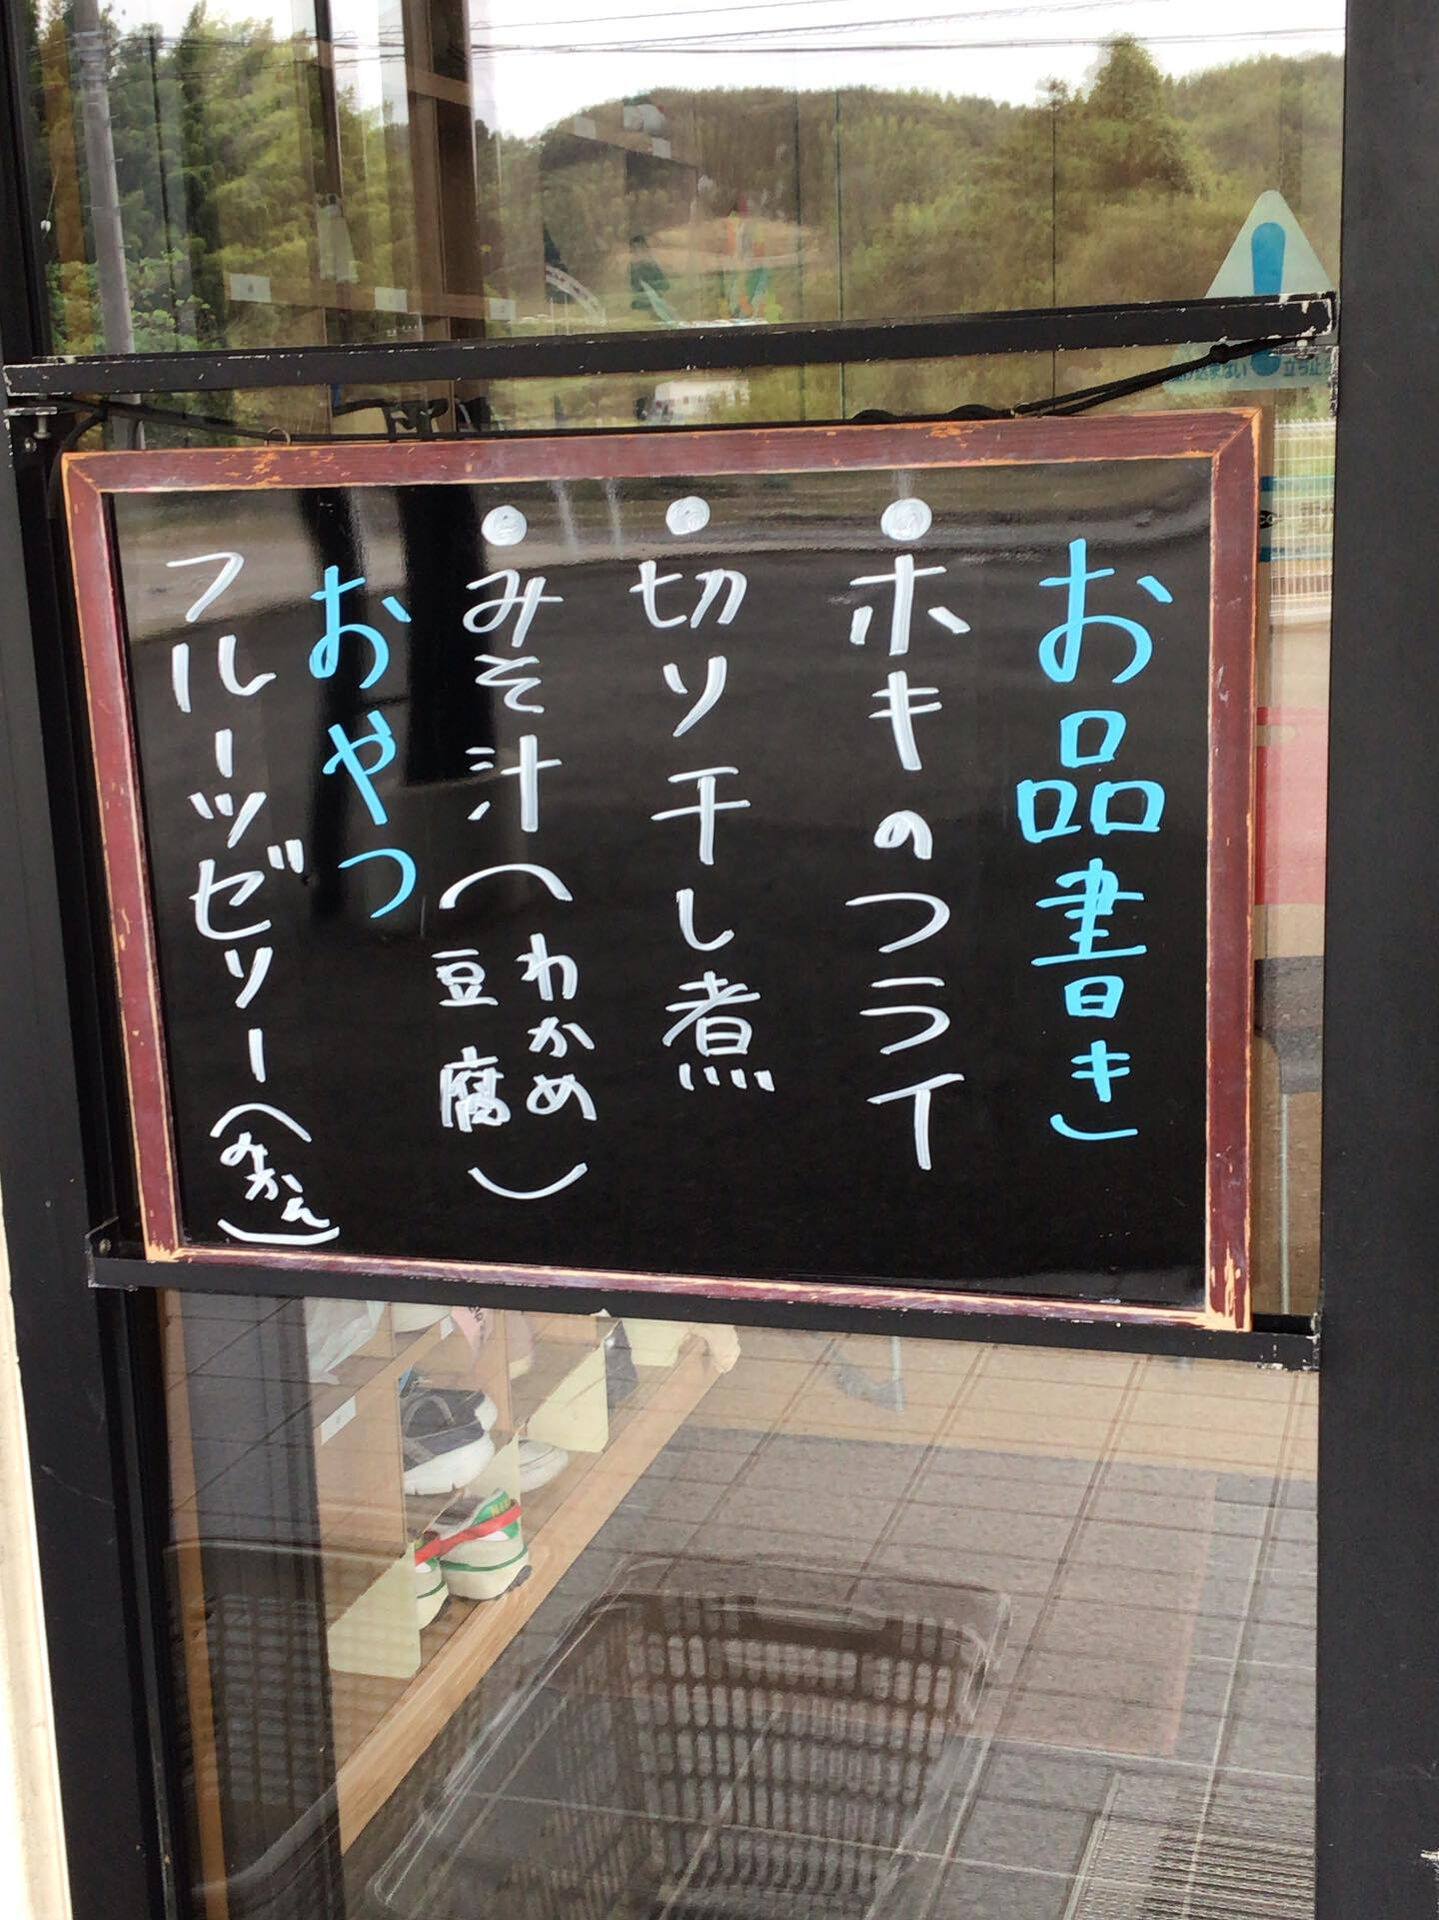 お品書き
●ホキのフライ
●切り干し煮
●みそ汁(わかめ
豆腐)
おやつ
フルーツゼリー(みかん)